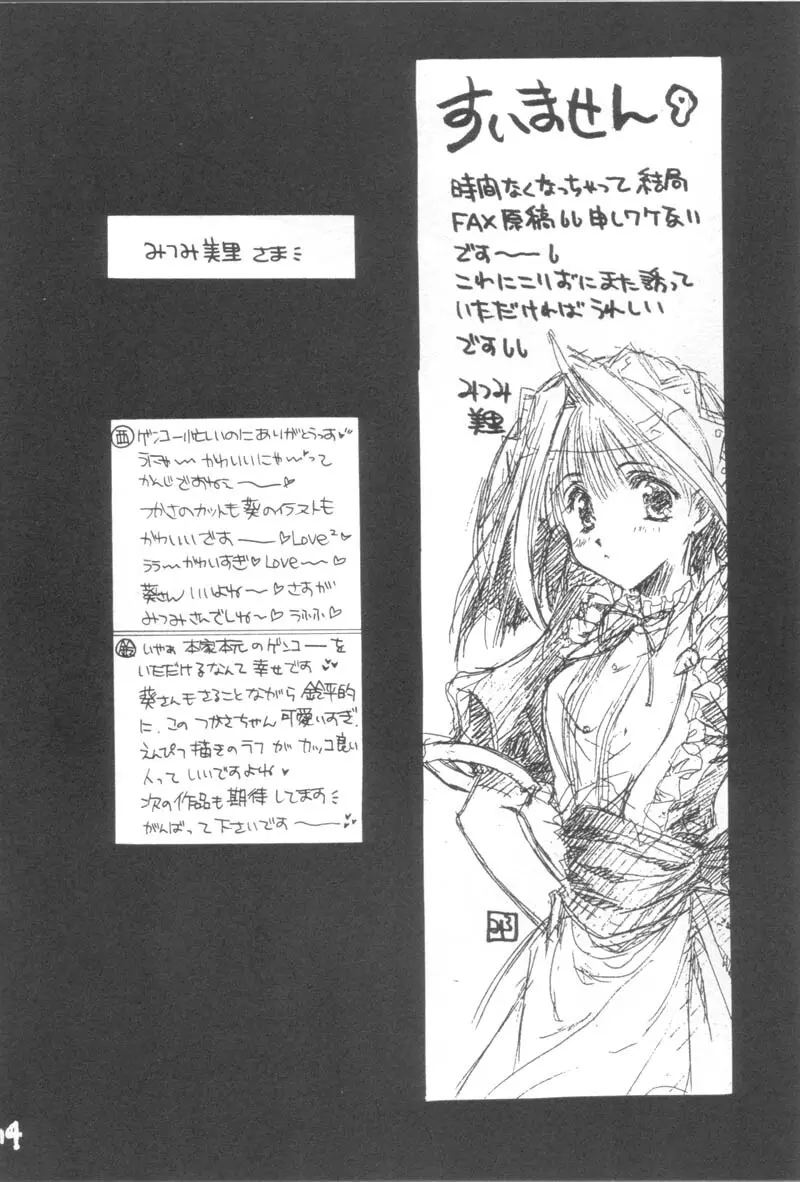 すいません
時間なくなっちゃって結局
FAX原稿 申しワケない
です〜〜
これにこりずにまた誘って
いただければうれしい
です
みつみ
美里
みつみ美里 さま
西 ゲンコー忙しいのにありがとうっす♥
うにゃ〜〜かわいいにゃ〜♥って
かんじですねー〜〜♥
つかさのカットも葵のイラストも
かわいいです〜〜♡Love²
ララ〜かわいすぎ♡Love〜〜♡
葵さんいいよね〜♡さすが
みつみさんでしね〜♡うふふ♡
いやぁ 本家本元のゲンコーを
いただけるなんて幸せです♥♥
葵さんもさることながら鈴平的
に、このつかさちゃん可愛いすぎ。
えんぴつ描きのラフがカッコ良い
人っていいですよね♥
次の作品も期待してます
がんばって下さいです〜〜♥♥
14